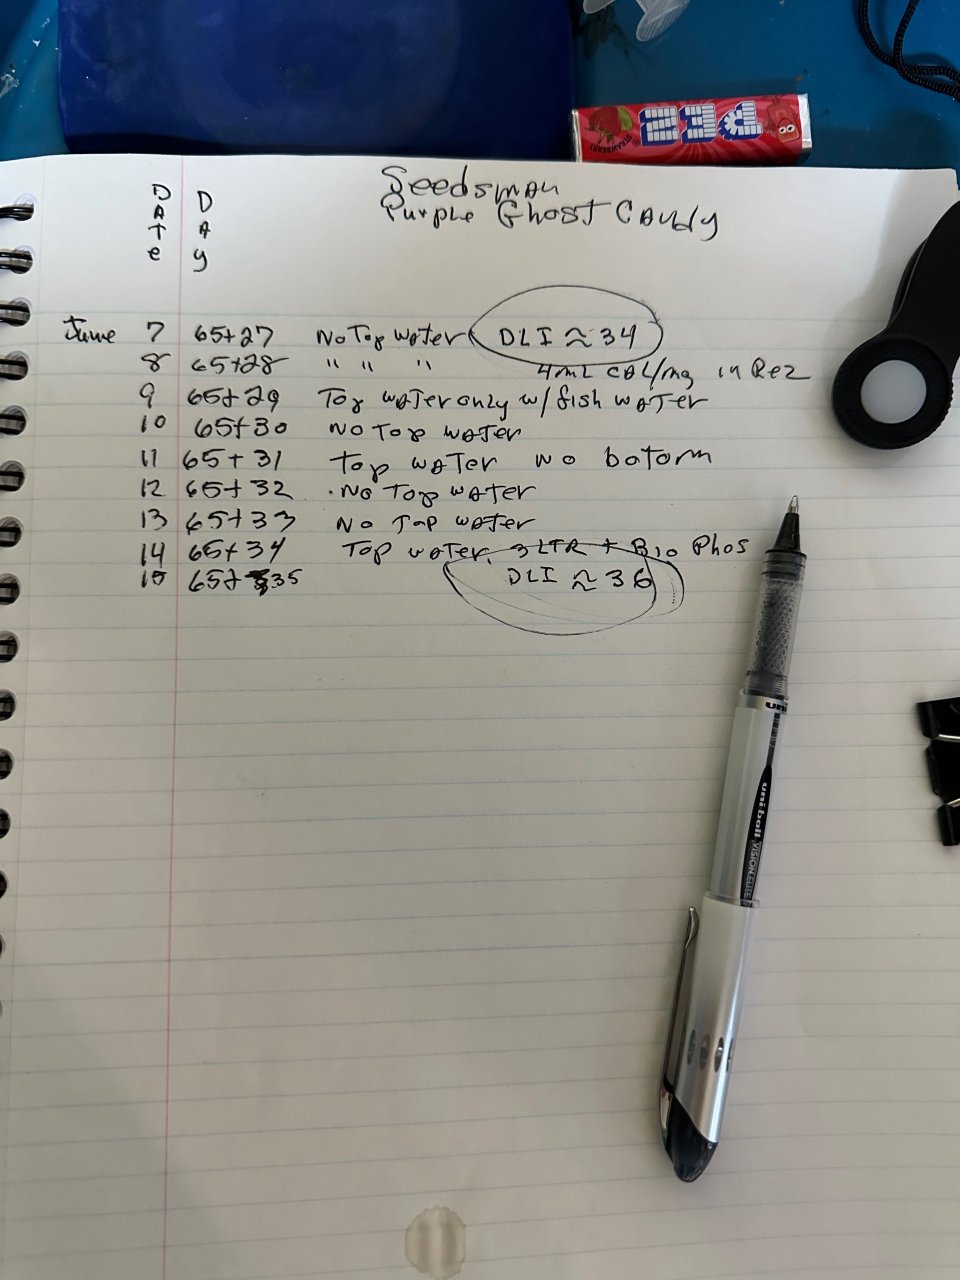 PEZ
STRAWBERRY
Seedsman
Purple Ghost Candy
DATe
DAy
June 7 65+27 No Top water DLI ≈ 34
8 65+28 " " " 4mL CAL/mg in Rez
9 65+29 Top water only w/ fish water
10 65+30 No Top water
11 65+31 Top water no botom
12 65+32 No Top water
13 65+33 No Top water
14 65+34 Top water 3 LTR + Bio Phos
15 65+35 DLI ≈ 36
uni
uni-ball VISION ELITE